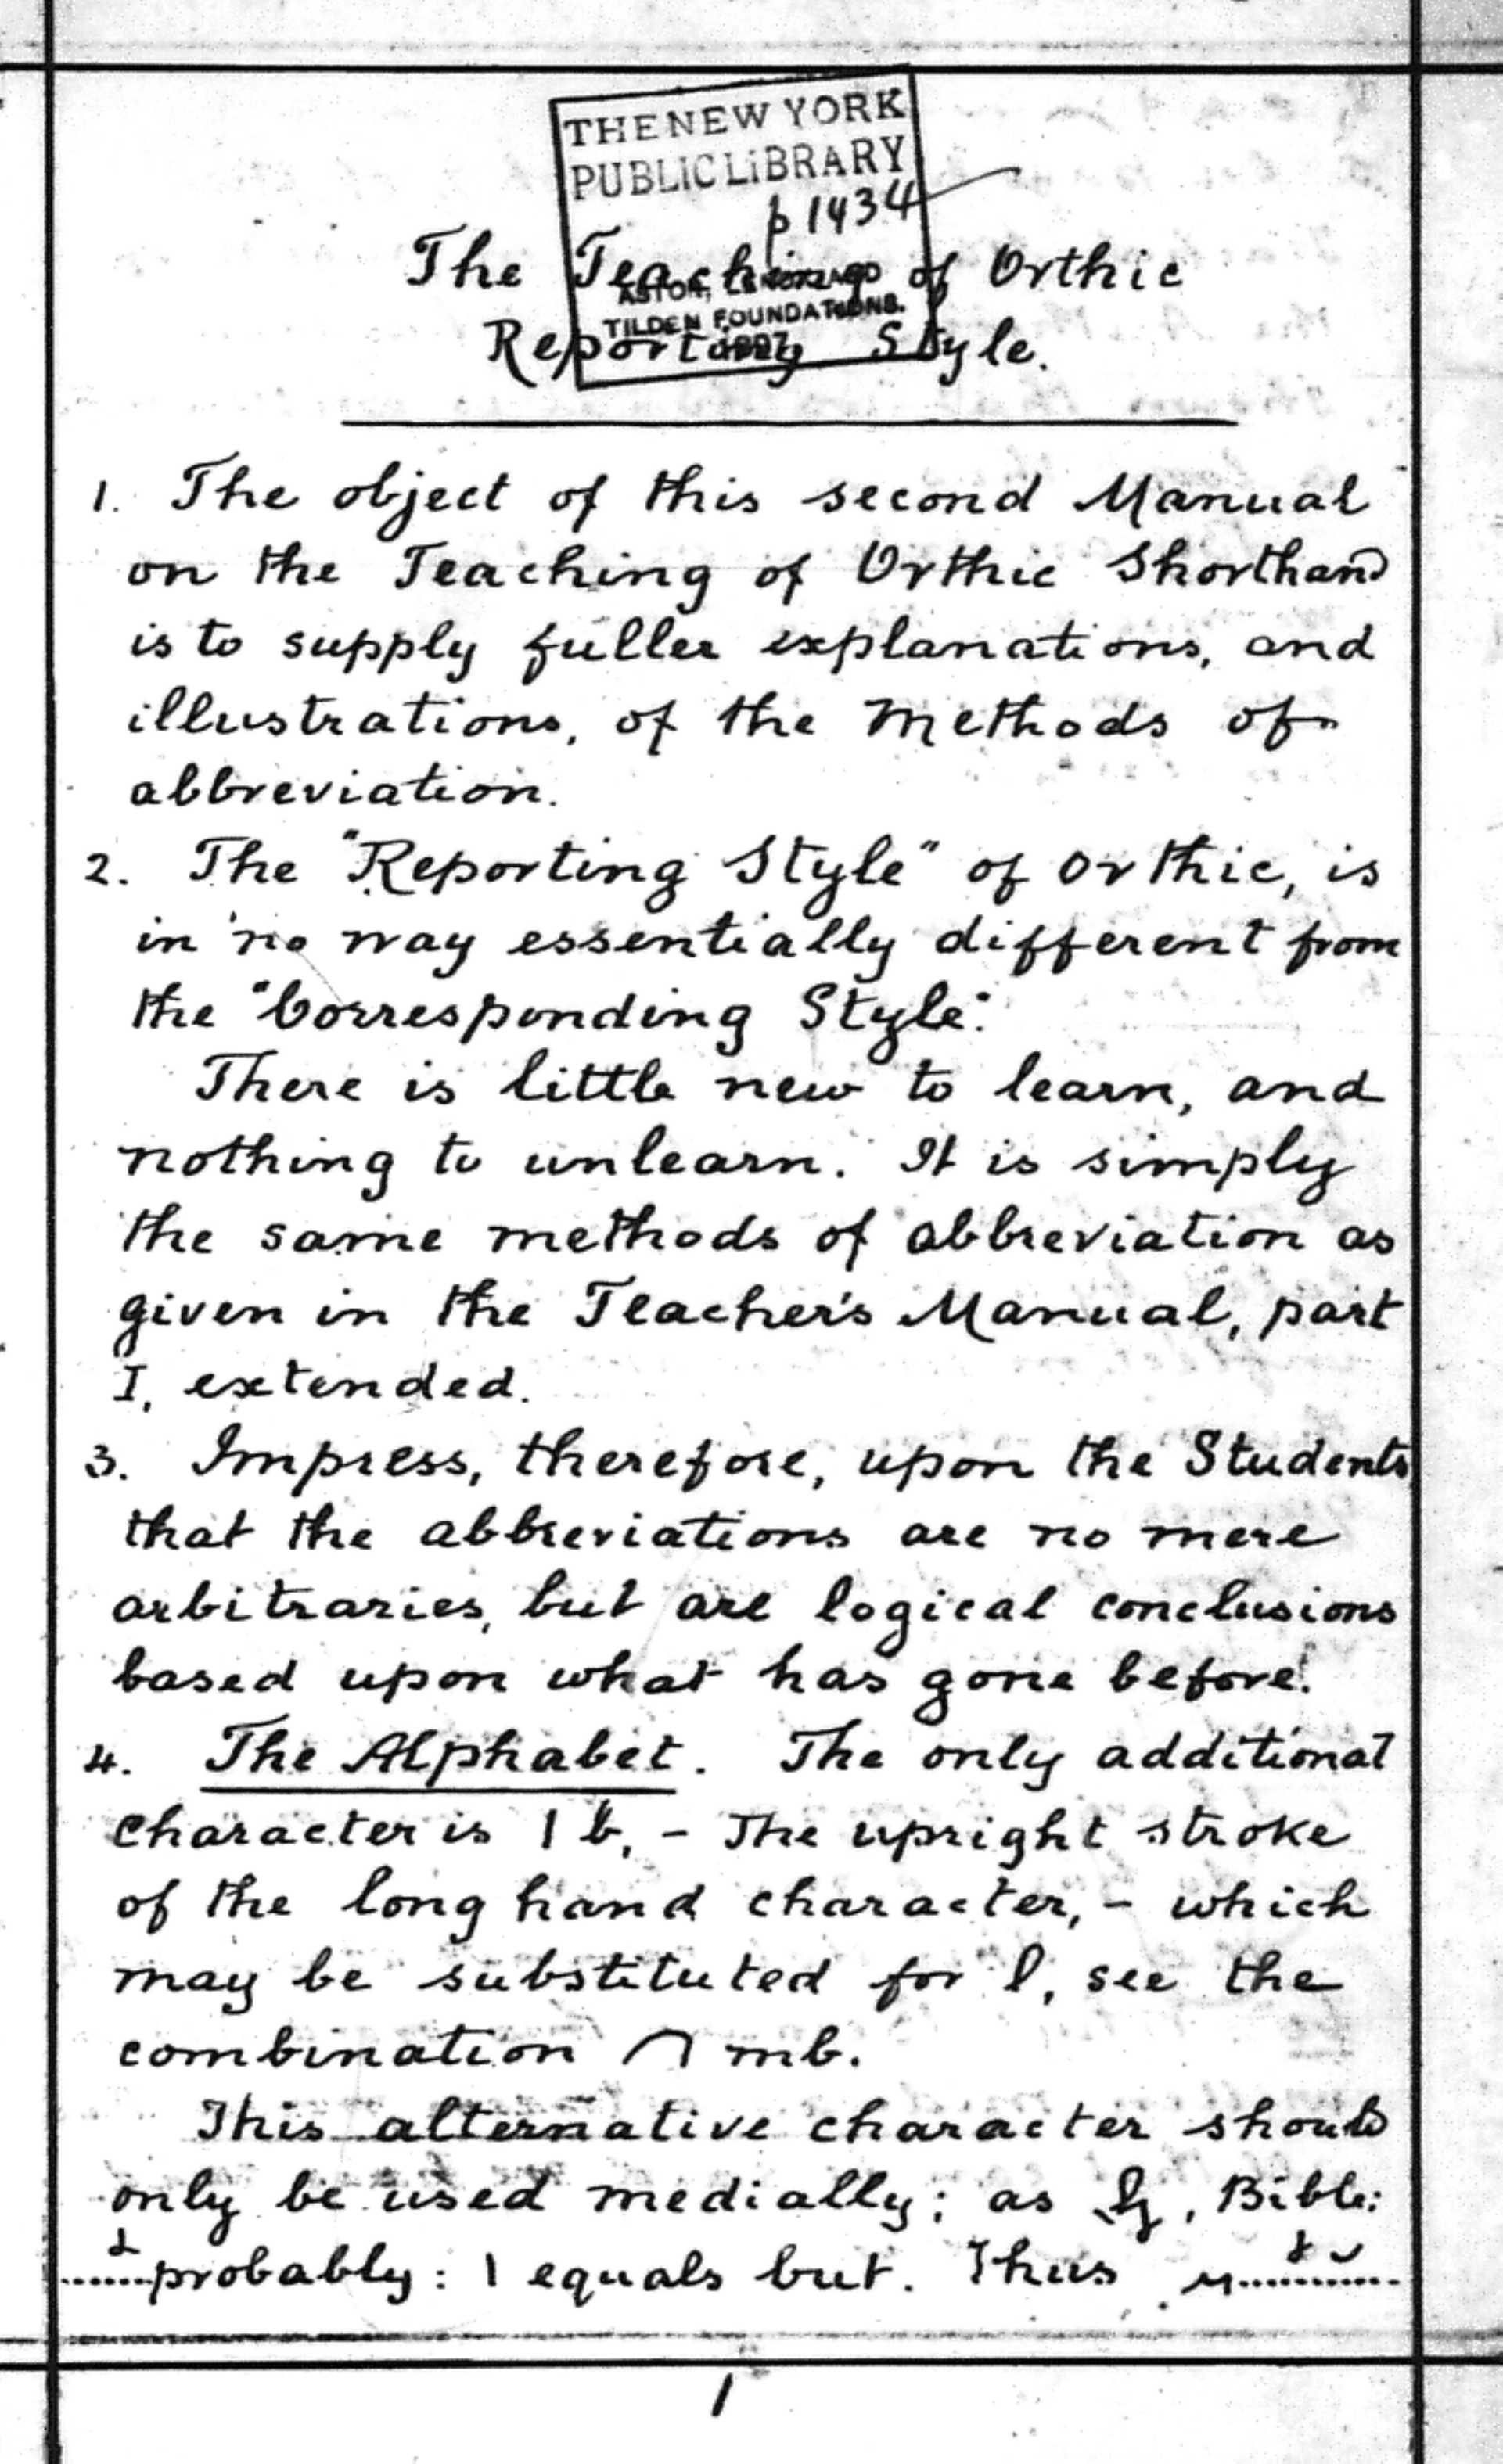 THE NEW YORK
PUBLIC LIBRARY
p 1434
The Teaching of Orthic
ASTOR, LENOX AND
TILDEN FOUNDATIONS.
Reporting Style.
1. The object of this second Manual
on the Teaching of Orthic Shorthand
is to supply fuller explanations, and
illustrations, of the Methods of
abbreviation.
2. The "Reporting Style" of Orthic, is
in no way essentially different from
the "Corresponding Style".
There is little new to learn, and
nothing to unlearn. It is simply
the same methods of abbreviation as
given in the Teacher's Manual, part
I, extended.
3. Impress, therefore, upon the Students
that the abbreviations are no mere
arbitraries, but are logical conclusions
based upon what has gone before.
4. The Alphabet. The only additional
character is | b, - The upright stroke
of the long hand character, - which
may be substituted for l, see the
combination mb.
This alternative character should
only be used medially; as , Bible:
probably: | equals but. Thus
1